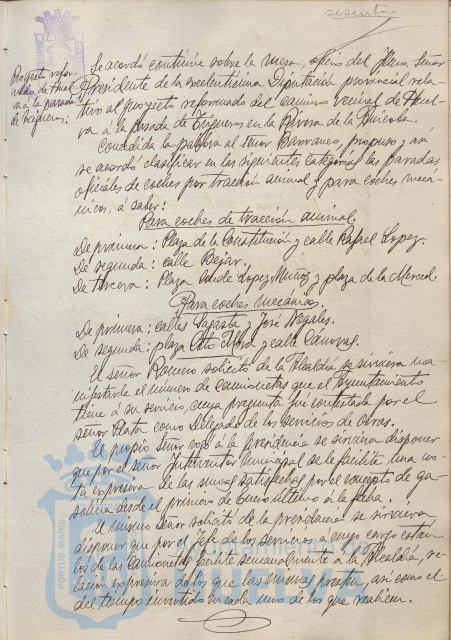 sesenta
Proyecto refor-
mado de Huel-
va a la parada
de Trigueros:
Se acordó continúe sobre la mesa, oficio del Ilmo. Señor
Presidente de la Excelentísima Diputación provincial rela-
tivo al proyecto reformado del camino vecinal de Huel-
va á la parada de Trigueros en la Ribera de la
Concedida la palabra al Señor Barranco, propuso y así
se acordó clasificar en las siguientes categorías las paradas
oficiales de coches por tracción animal y para coches mecá-
nicos, á saber:
Para coches de tracción animal.
De primera: Plaza de la Constitución y calle Rafael Lopez.
De segunda: calle Bejar.
De tercera: Plaza Lopez Muñoz y plaza de la Merced.
Para coches mecánicos.
De primera: calles Sagasta y José Nogales.
De segunda: plaza y calle Cánovas.
El señor Romero solicitó de la Alcaldía se sirviera ma-
nifestarle el número de camionetas que el Ayuntamiento
tiene á su servicio, cuya pregunta fué contestada por el
señor Plata como Delegado de los servicios de Obras.
El propio Señor rogó á la presidencia se sirviera disponer
que por el señor Interventor Municipal se le facilite una no-
ta expresiva de las sumas satisfechas por el concepto de ga-
solina desde el primero de Enero último a la fecha.
El mismo Señor solicitó de la presidencia se sirviera
disponer que por el Jefe de los servicios a cuyo cargo están
los de Camionetas facilite semanalmente a la Alcaldía, re-
lación expresiva de los que las mismas presten, así como el
del tiempo invertido en cada uno de los que realicen.
PORTUS MARIS
Ayuntamiento de
HUELVA